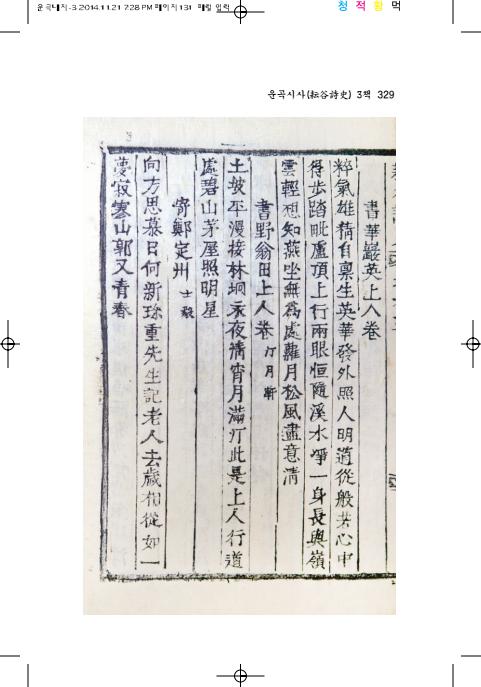 운곡내지-3 2014.11.21 7:28 PM 페이지131 매킬 인턱
청 적 황 먹
운곡시사(耘谷詩史) 3책 329
書華巖英上人卷
粹氣雄精自稟生英華發外照人明道從般若心中
得步踏毗盧頂上行兩眼恒隨溪水淨一身長與嶺
雲輕想知燕坐無爲處蘿月松風盡意淸
書野翁田上人卷
土坡平漫接林坰永夜淸宵月滿汀此是上人行道
處碧山茅屋照明星
寄鄭定州
向方思慕日何新珎重先生記老人去歲相從如一
夢寂寥山郭又靑春